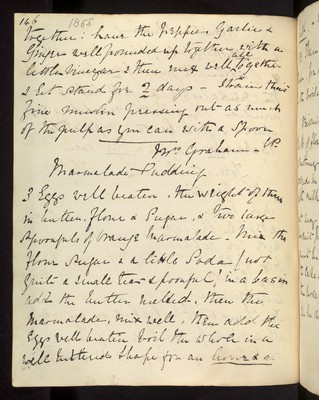 146 1865
together: have the Peppers Garlic &
Ginger well pounded up together with a
little Vinegar & then mix well all together
& let stand for 2 days - Strain thro'
fine muslin pressing out as much
of the pulp as you can with a Spoon
Mrs Graham
Marmalade Pudding
3 Eggs well beaten. the weight of them
in butter, flour & Sugar, & two large
Spoonfuls of Orange Marmalade. Mix the
flour Sugar & a little Soda (not
quite a small tea spoonful) in a basin
add the butter melted, then the
Marmalade, mix well, then add the
Eggs well beaten boil the whole in a
well buttered shape for an hour & a